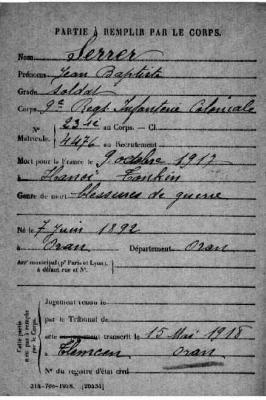 PARTIE À REMPLIR PAR LE CORPS.
Nom Serrer
Prénoms Jean Baptiste
Grade Soldat
Corps 9e Regt Infanterie Coloniale
N° Matricule. 23 au Corps. — Cl.
4476 au Recrutement
Mort pour la France le 9 octobre 1917
à Hanoï Tonkin
Genre de mort blessures de guerre
Né le 7 Juin 1892
à Oran Département Oran
Arr municipal (pr Paris et Lyon), à défaut rue et N°.
Cette partie n'est pas à remplir par le Corps.
Jugement rendu le
par le Tribunal de
acte transcrit le 15 Mai 1918
à Tlemcen Oran
N° du registre d'état civil